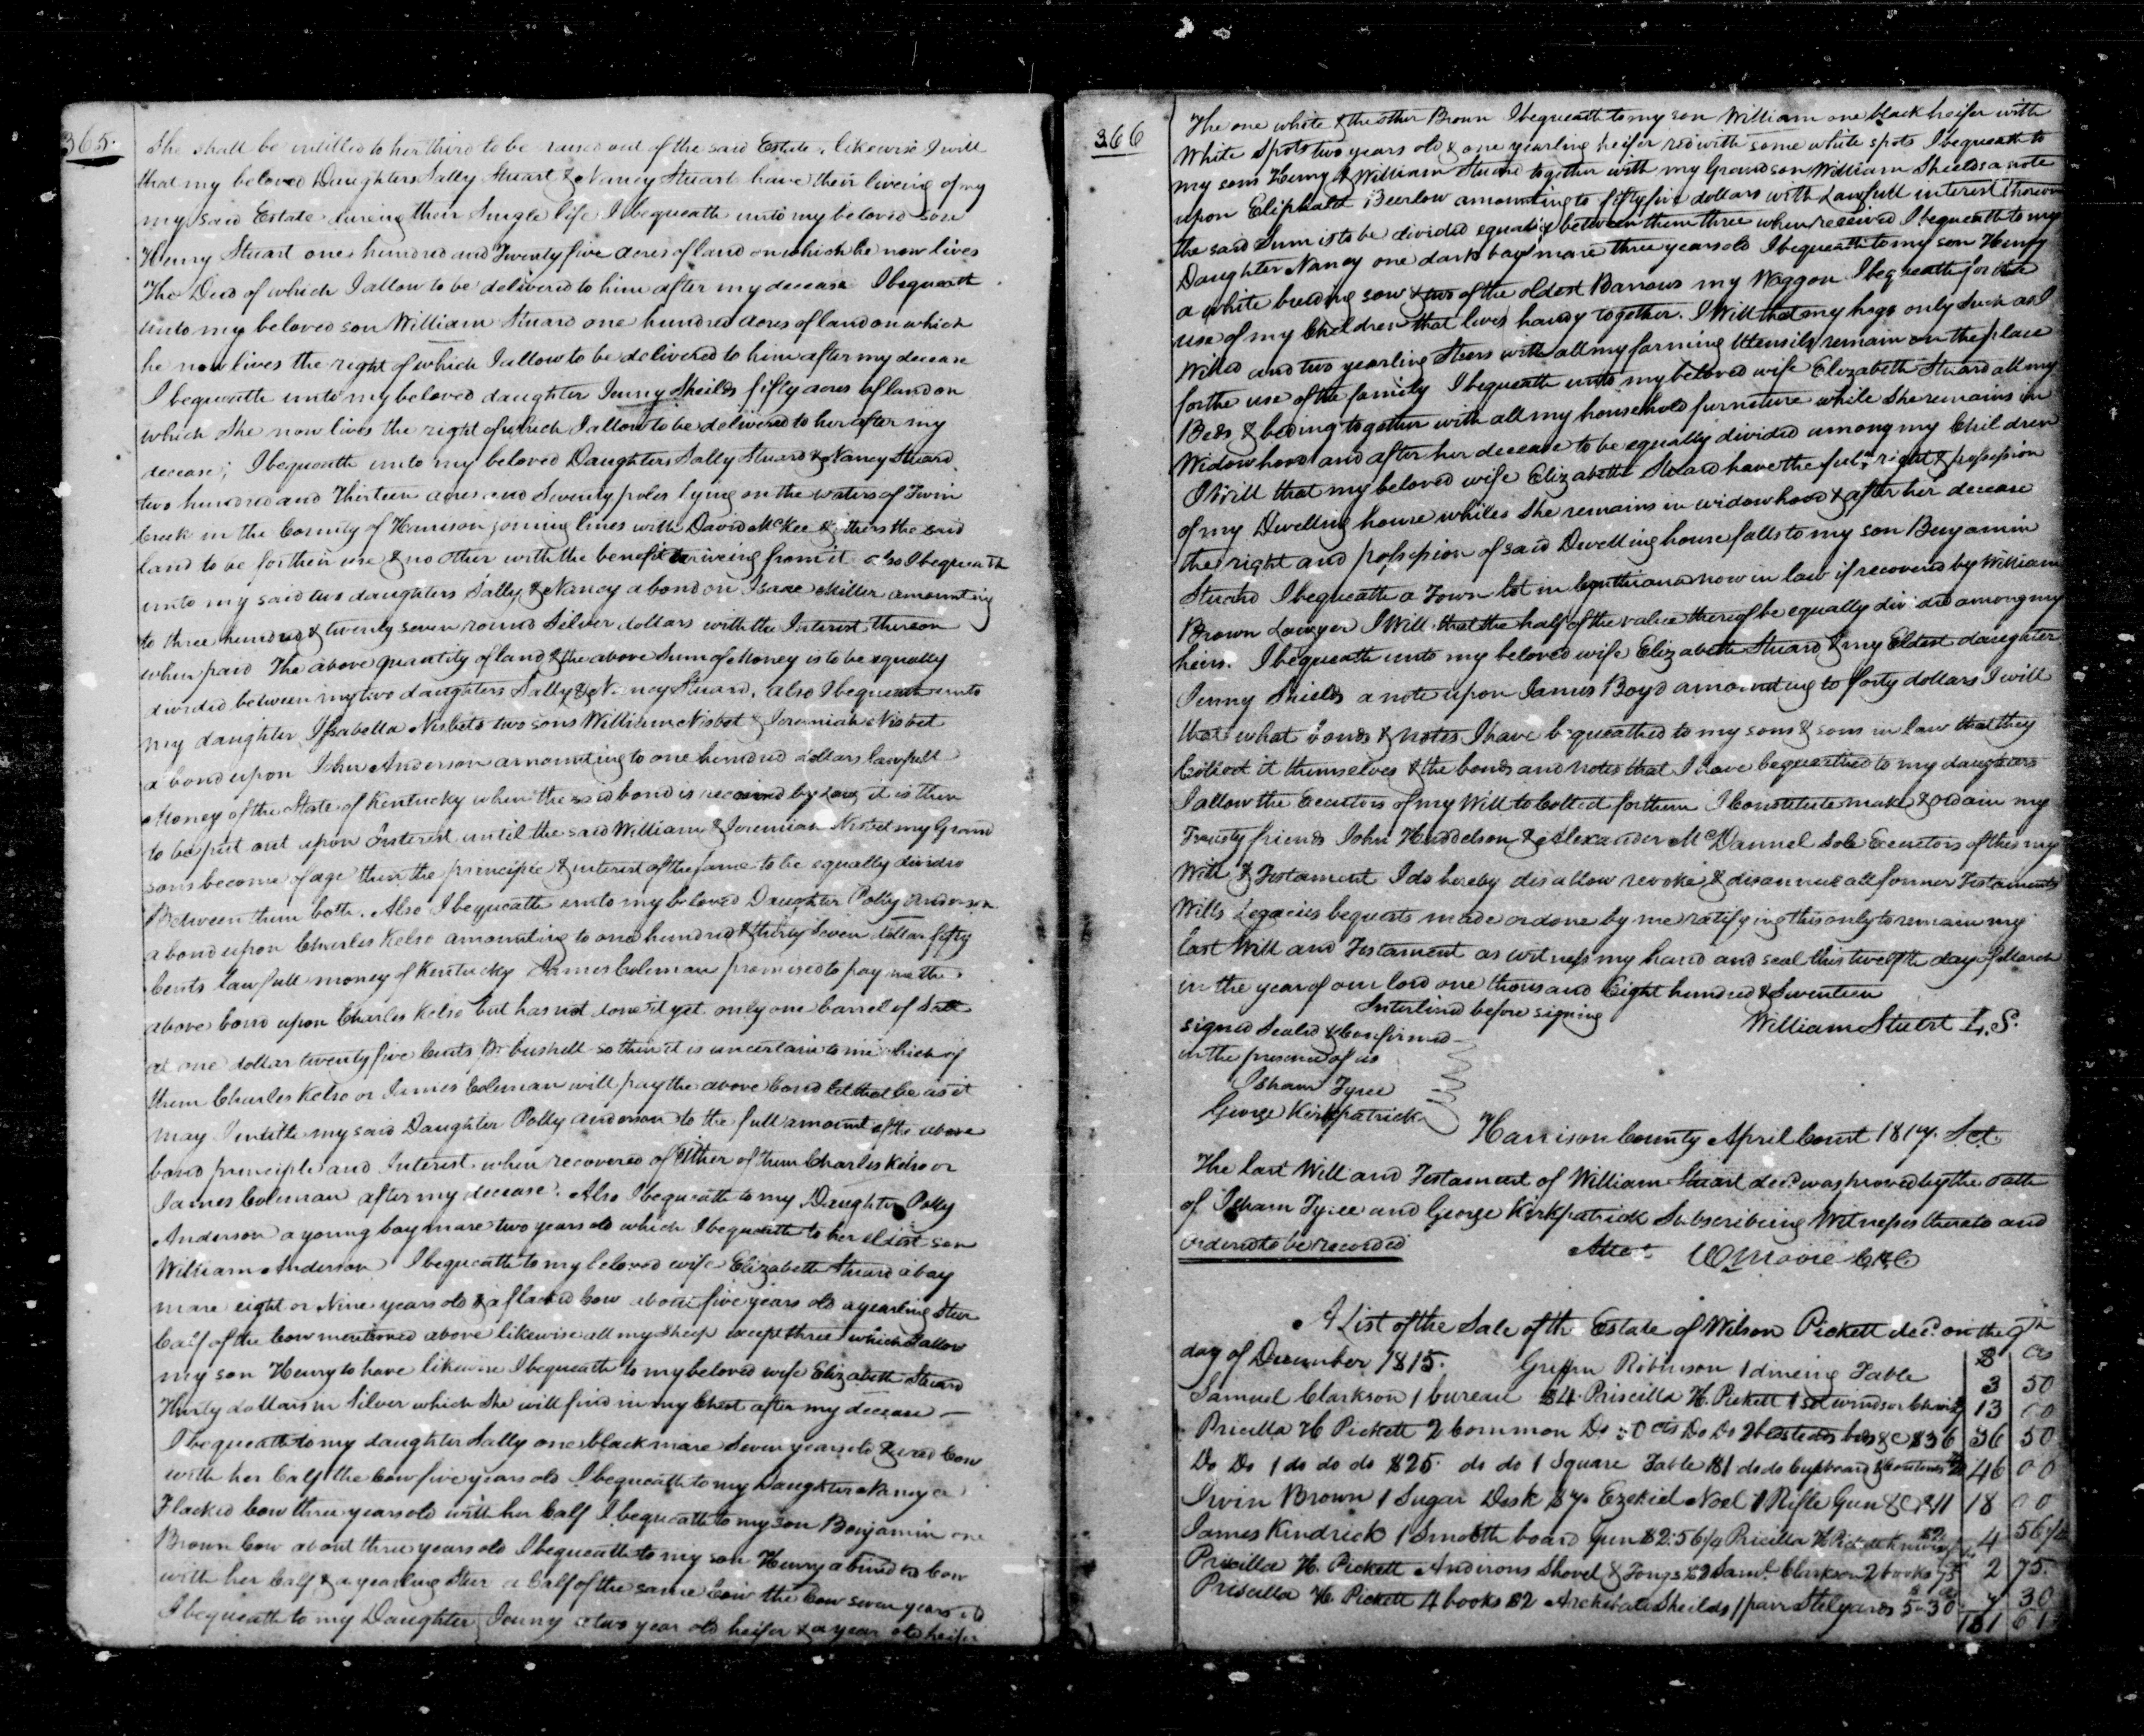 365.
She shall be intitled to her third to be raised out of the said Estate, likewise I will
that my beloved Daughters Sally Stuart & Nancy Stuart have their liveing of my
my said Estate dureing their Single life I bequeath unto my beloved son
Henry Stuart one hundred and Twenty five acres of land on which he now lives
The Deed of which I allow to be delivered to him after my decease I bequeath
unto my beloved son William Stuard one hundred acres of land on which
he now lives the right of which I allow to be delivered to him after my decease
I bequeath unto my beloved daughter Jenny Sheilds fifty acres of land on
which She now lives the right of which I allow to be delivered to her after my
decease; I bequeath unto my beloved Daughters Sally Stuard & Nancy Stuard
two hundred and Thirteen acres and Seventy poles lying on the waters of Twin
Creek in the County of Harrison joining lines with David McKee & others the said
land to be for their use & no other with the benefit ariveing from it also I bequeath
unto my said two daughters Sally & Nancy a bond on Isaac Miller amounting
to three hundred & twenty seven round Silver dollars with the Interest thereon
when paid The above quantity of land & the above Sum of Money is to be equally
divided between my two daughters Sally & Nancy Stuard, also I bequeath unto
my daughter Issabella Nisbets two sons William Nisbet & Jeremiah Nisbet
a bond upon John Anderson amounting to one hundred dollars lawfull
Money of the State of Kentucky when the said bond is received by Law it is then
to be put out upon Interest until the said William & Jeremiah Nisbet my Grand
sons become of age then the principle & interest of the same to be equally divided
Between them both. Also I bequeath unto my beloved Daughter Polly Anderson
a bond upon Charles Kelso amounting to one hundred & thirty Seven dollar fifty
Cents lawfull money of Kentucky James Coleman promised to pay me the
above bond upon Charles Kelso but has not done it yet only one barrel of Salt
at one dollar twenty five Cents Pr bushell so then it is uncertain to me which of
them Charles Kelso or James Coleman will pay the above bond let that be as it
may I intitle my said Daughter Polly Anderson to the full amount of the above
bond principle and Interest when recovered of Either of them Charles Kelso or
James Coleman after my decease. Also I bequeath to my Daughter Polly
Anderson a young bay mare two years old which I bequeath to her eldest son
William Anderson I bequeath to my beloved wife Elizabeth Stuard a bay
mare eight or Nine years old & a flacked Cow about five years old a yearling Steer
Calf of the Cow mentioned above likewise all my Sheep except three which I allow
my son Henry to have likewise I bequeath to my beloved wife Elizabeth Stuard
Thirty dollars in Silver which She will find in my Chest after my decease —
I bequeath to my daughter Sally one black mare Seven years old & a red Cow
with her Calf the Cow five years old I bequeath to my Daughter Nancy a
Flacked Cow three years old with her Calf I bequeath to my son Benjamin one
Brown Cow about three years old I bequeath to my son Henry a Cow
with her Calf & a yearling Steer a Calf of the same Cow the Cow seven years old
I bequeath to my Daughter Jenny a two year old heifer & a year old heifer
366
The one white & the other Brown I bequeath to my son William one black heifer with
White Spots two years old & one yearling heifer red with some white spots I bequeath to
my sons Henry & William Stuard together with my Grandson William Shields a note
upon Eliphalet Beerlow amounting to fifty five dollars with Lawfull interest thereon
the said Sum is to be divided equally between them three when received I bequeath to my
Daughter Nancy one dark bay mare three years old I bequeath to my son Henry
a white breeding sow & two of the oldest Barrows my Waggon I bequeath for the
use of my Children that lives handy together. I Will that my hogs only Such as I
Willed and two yearling Steers with all my farming Utensils remain on the place
for the use of the family I bequeath unto my beloved wife Elizabeth Stuard all my
Beds & beding together with all my household furniture while She remains in
Widowhood and after her decease to be equally divided among my Children
I Will that my beloved wife Elizabeth Stuard have the full right & possession
of my Dwelling house whiles She remains in widowhood & after her decease
the right and possession of said Dwelling house falls to my son Benjamin
Stuard I bequeath a Town lot in Cynthiana now in law if recovered by William
Brown Lawyer I Will that the half of the value thereof be equally divided among my
heirs. I bequeath unto my beloved wife Elizabeth Stuard & my Eldest daughter
Jenny Shields a note upon James Boyd amounting to forty dollars I will
that what bonds & notes I have bequeathed to my sons & sons in law that they
Collect it themselves & the bonds and notes that I have bequeathed to my daughters
I allow the Executors of my Will to Collect for them I Constitute make & ordain my
Trusty friends John Huddelson & Alexander McDannel Sole Executors of this my
Will & Testament I do hereby disallow revoke & disannul all former Testaments
Wills Legacies bequests made or done by me ratifying this only to remain my
last Will and Testament as witness my hand and seal this twelfth day of March
in the year of our lord one thousand Eight hundred & Seventeen
Interlined before signing
signed Sealed & Confirmed
William Stuert L.S.
in the presence of us
Isham Tyree
George Kirkpatrick
Harrison County April Court 1817. Sct.
The last Will and Testament of William Stuart decd. was proved by the oath
of Isham Tyree and George Kirkpatrick Subscribeing Witnesses thereto and
ordered to be recorded
Attest W Moore C.H.C
A List of the Sale of the Estate of Wilson Pickett decd. on the 9th
day of December 1815. Griffin Robinson 1 dineing Table $ 3 cts 50
Samuel Clarkson 1 bureau $4 Priscilla H. Pickett 1 set windsor Chairs 13 00
Pricilla H Pickett 2 Common Do 50 cts Do Do 2 bedsteads beds &c $36 36 50
Do Do 1 do do do $25. do do 1 Square Table $1 do do Cupboard & 46 00
Irvin Brown 1 Sugar Desk $7. Ezekiel Noel 1 Rifle Gun &c $11 18 00
James Kindrick 1 Smooth board Gun $2:56 1/4 Pricilla H Pickett 4 56 1/4
Pricilla H. Pickett Andirons Shovel & Tongs $2 Saml. Clarkson 2 books 75 2 75.
Priscilla H. Pickett 4 books $2 Archibald Sheilds 1 pair Stilyards 5-30 7 30
131 61